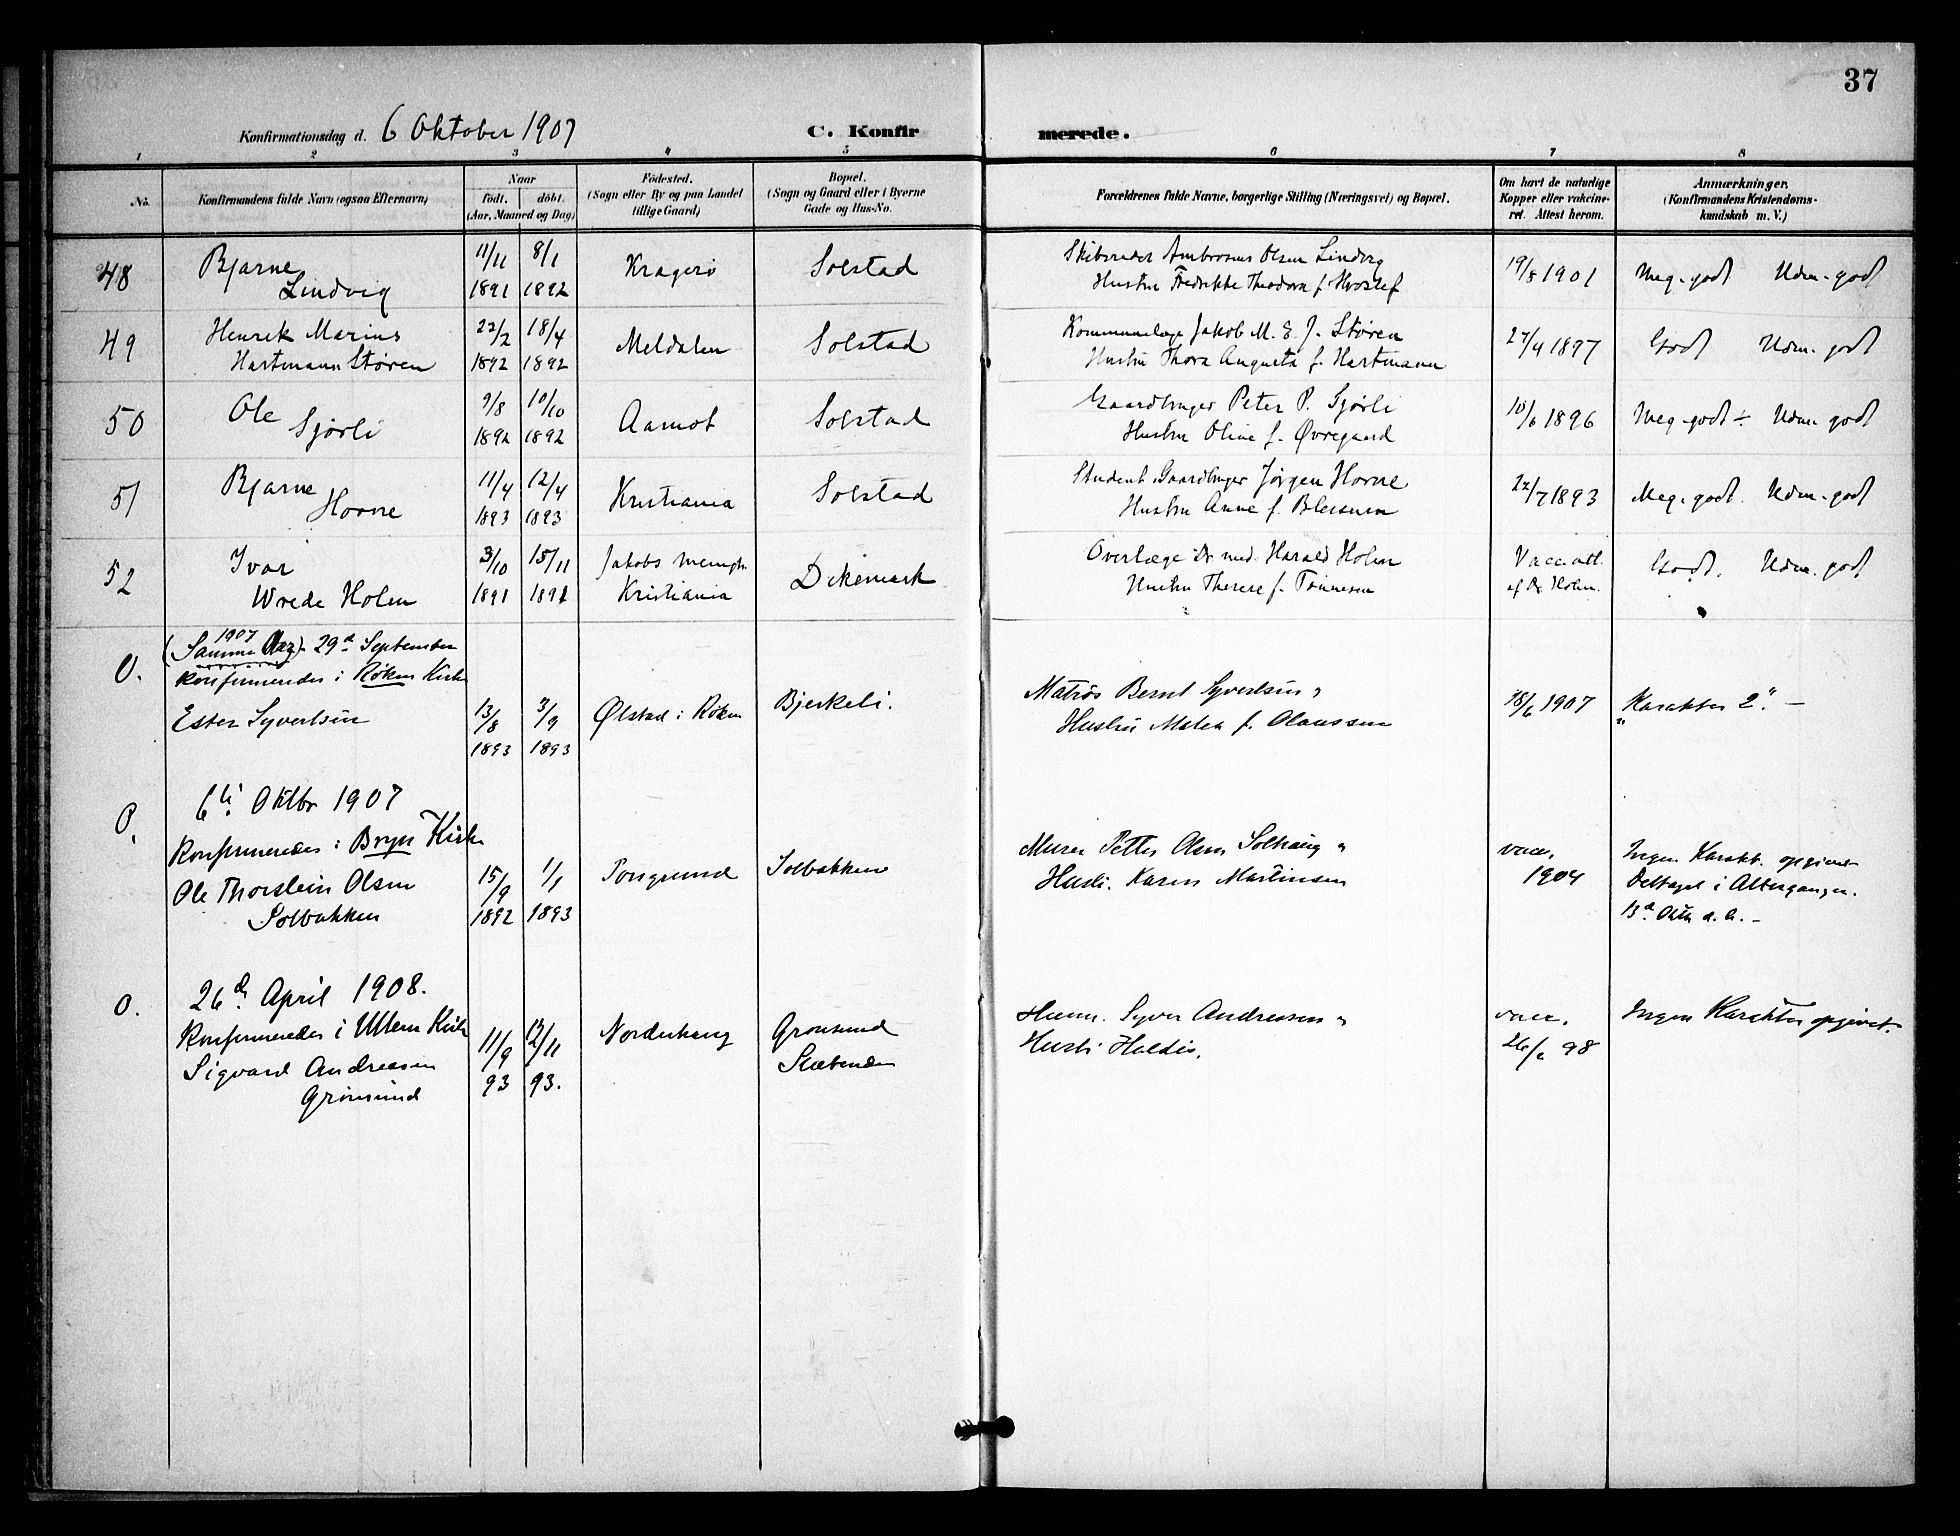 37
Konfirmationsdag d. 6 Oktober 1907
C. Konfirmerede.
1 2 3 4 5 6 7 8
No.
Konfirmandens fulde Navn (ogsaa Efternavn)
Naar
født. døbt.
(Aar, Maaned og Dag)
Fødested.
(Sogn eller By og paa Landet
tillige Gaard)
Bopæl.
(Sogn og Gaard eller i Byerne
Gade og Hus-No.
Forældrenes fulde Navne, borgerlige Stilling (Næringsvei) og Bopæl.
Om havt de naturlige
Kopper eller vakcine-
ret. Attest herom.
Anmærkninger.
(Konfirmandens Kristendoms-
kundskab m. V.)
48 Bjarne 11/11 8/1 Kragerø Solstad Skibsreder Ambrosius Olsen Lindvig 19/8 1901 Meg. godt Udm. godt
Lindvig 1891 1892 Hustru Fredrikke Theodora f.
49 Henrik Marius 22/2 18/4 Meldalen Solstad Kommunelæge Jakob M. E. J. Støren 27/4 1897 Godt Udm. godt
Hartmann Støren 1892 1892 Hustru Thora Augusta f. Hartmann
50 Ole 9/8 10/10 Aamot Solstad Gaardbruger Peter P. Sjørli 10/6 1896 Meg. godt ÷ Udm. godt
Sjørli 1892 1892 Hustru Oline f. Øvregaard
51 Bjarne 11/4 12/4 Kristiania Solstad Student, Gaardbruger Jørgen Hovne 22/7 1893 Meg. godt. Udm. godt
Hovne 1893 1893 Hustru Anne f.
52 Ivar 3/10 15/11 Jakobs menigh. Dikemark Overlæge Dr med. Harald Holm Vacc. att. Godt. Udm. godt
Wrede Holm 1891 1891 Kristiania Hustru Therese f. Tønnesen af Dr Holm.
O. (Samme Aar) 1907 29d September
konfirmeredes i Røken Kirke
Ester Syvertsen 13/8 3/9 Ølstad i Røken Bjerkeli. Matros Bernt Syvertsen & 18/6 1907 "Karakter 2". —
1893 1893 Hustru Matea f. Olaussen
O. 6te Oktbr 1907
Konfirmeredes i Bryn Kirke Murer Petter Olsen Solhaug & vacc. Ingen Karakt. opgivet
Ole Thorstein Olsen 15/9 1/1 Porsgrund Solbakken Hustr. Karen Martinsen 1904 Deltaget i Altergangen.
Solbakken 1892 1893 13d Oktb d. A. —
O. 26de April 1908.
Konfirmeredes i Ullern Kirke 11/9 12/11 Norderhaug Grønsund Husm. Syver Andreasen & vacc. Ingen Karakter opgivet.
Sigvard Andreasen 93 93. Slæbenden Hustr. Haldis. 26/6 98
Grønsund